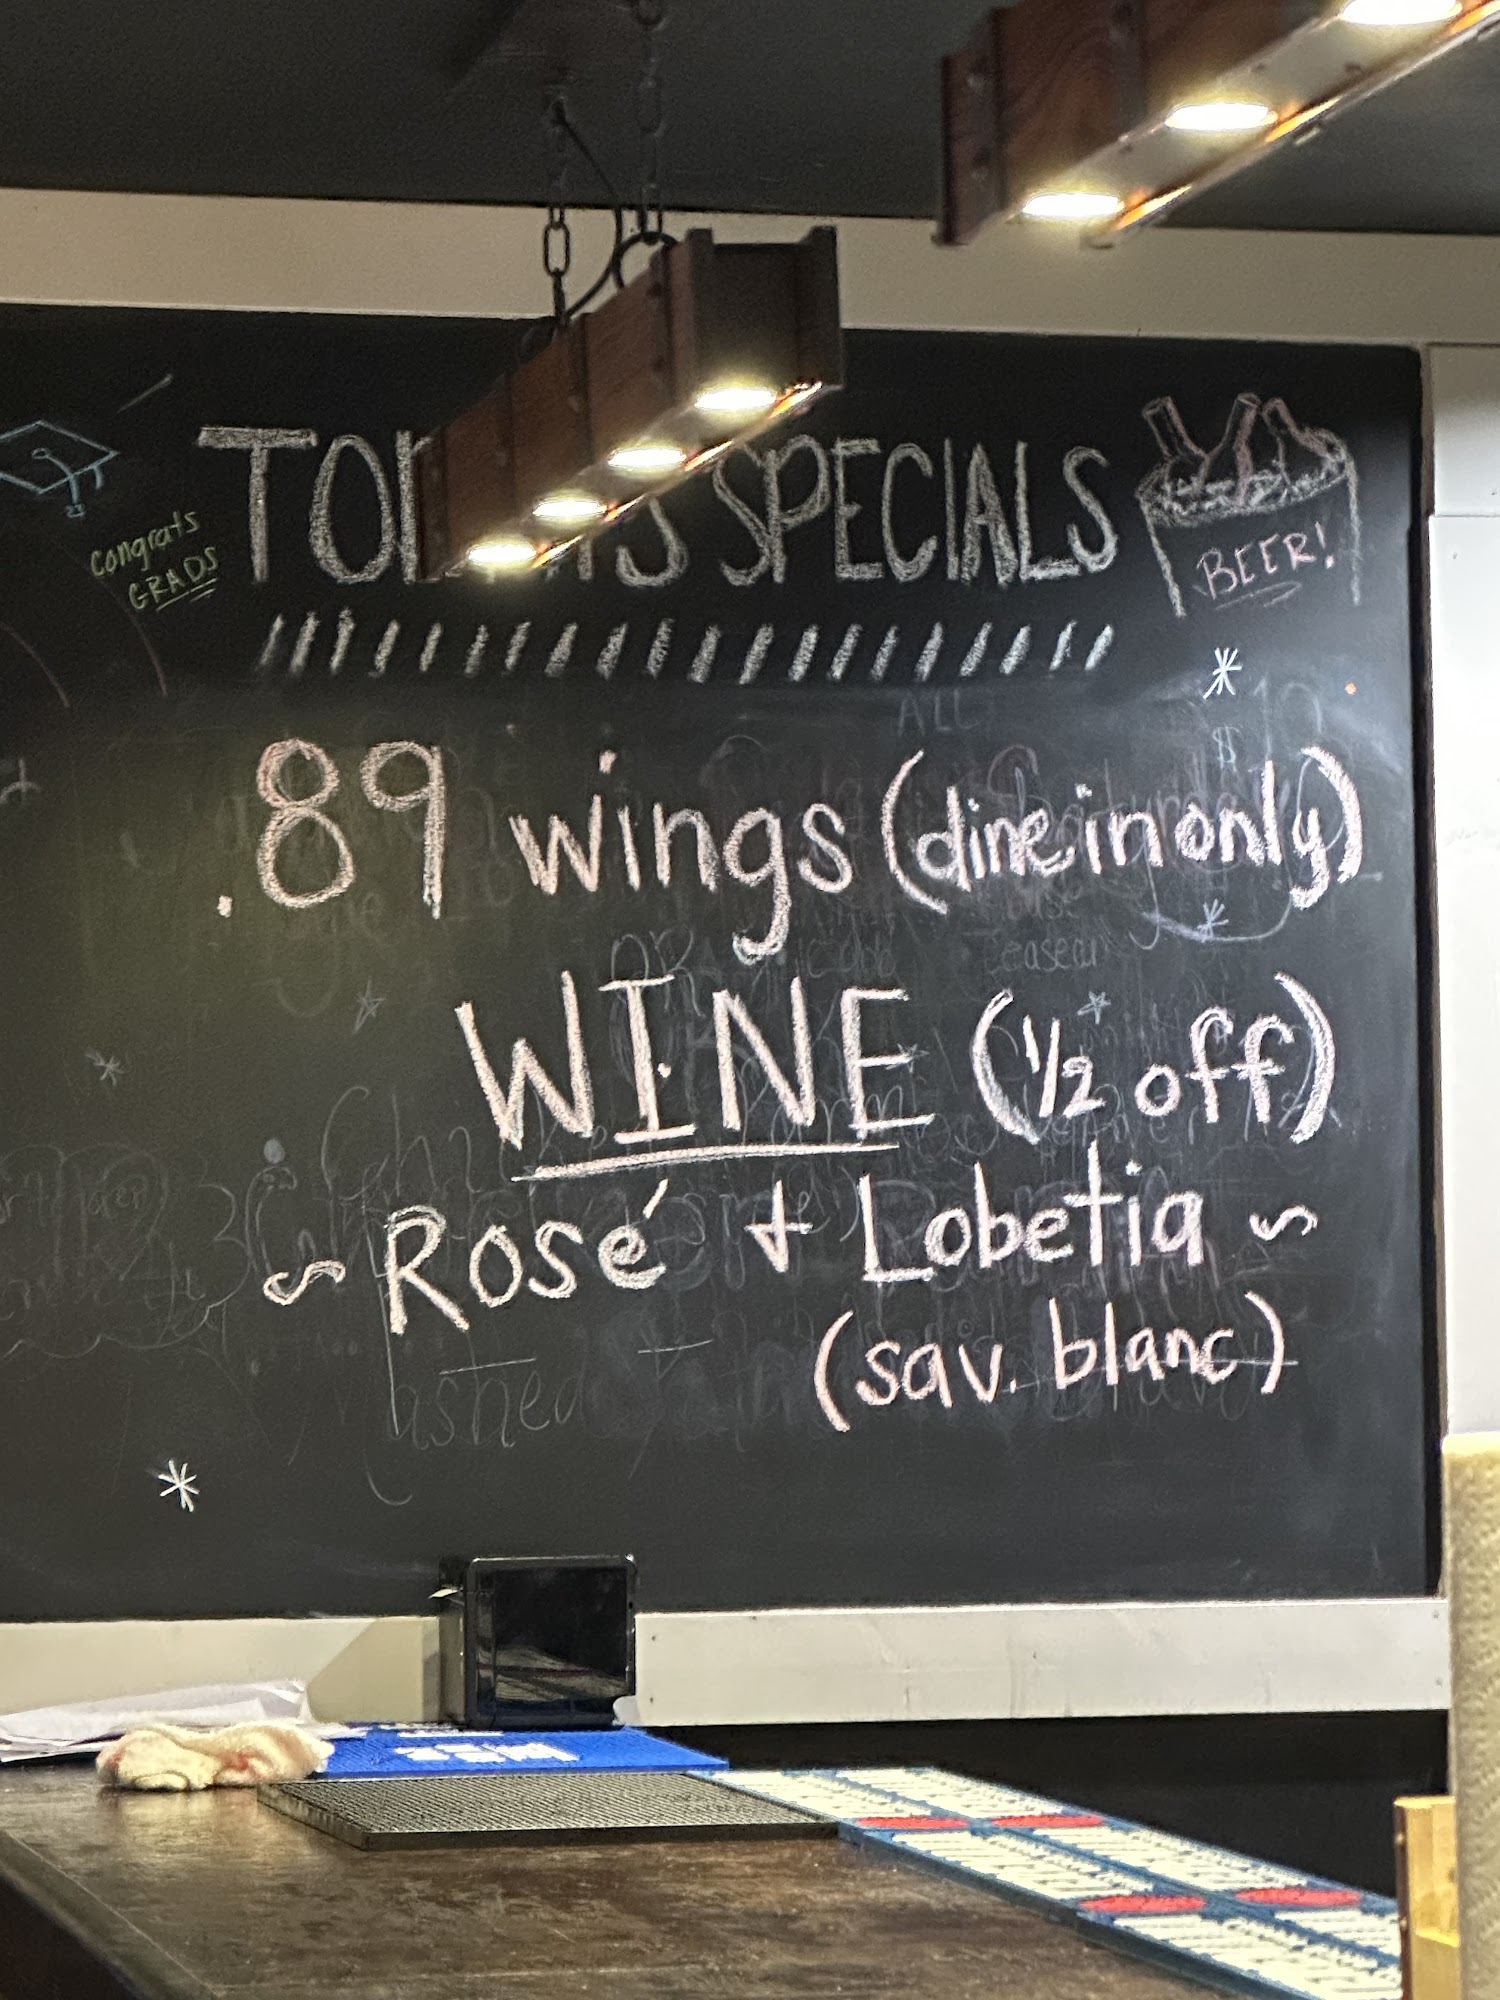 Congrats
GRADS
TODAY'S SPECIALS
BEER!
.89 wings (dine in only)
WINE (1/2 off)
~ Rosé + Lobetia ~
(sav. blanc)